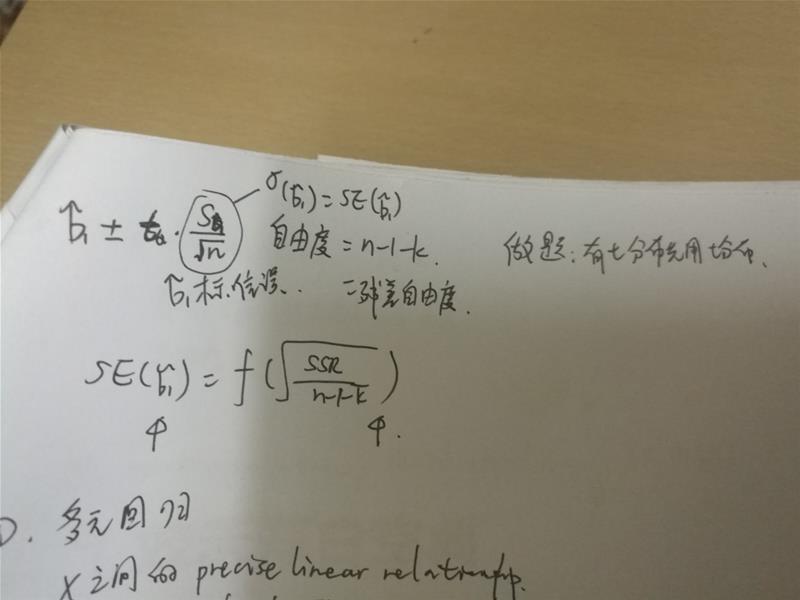 σ(b̂₁) = SE(b̂₁)
b̂₁ ± t · S/√n 自由度 = n-1-k. 做题:有t分布先用t分布、
b̂₁标准误、 = 残差自由度.
SE(b̂₁) = f(√(SSR/(n-1-k)))
↑ ↑.
D. 多元回归
X之间的 precise linear relationship.